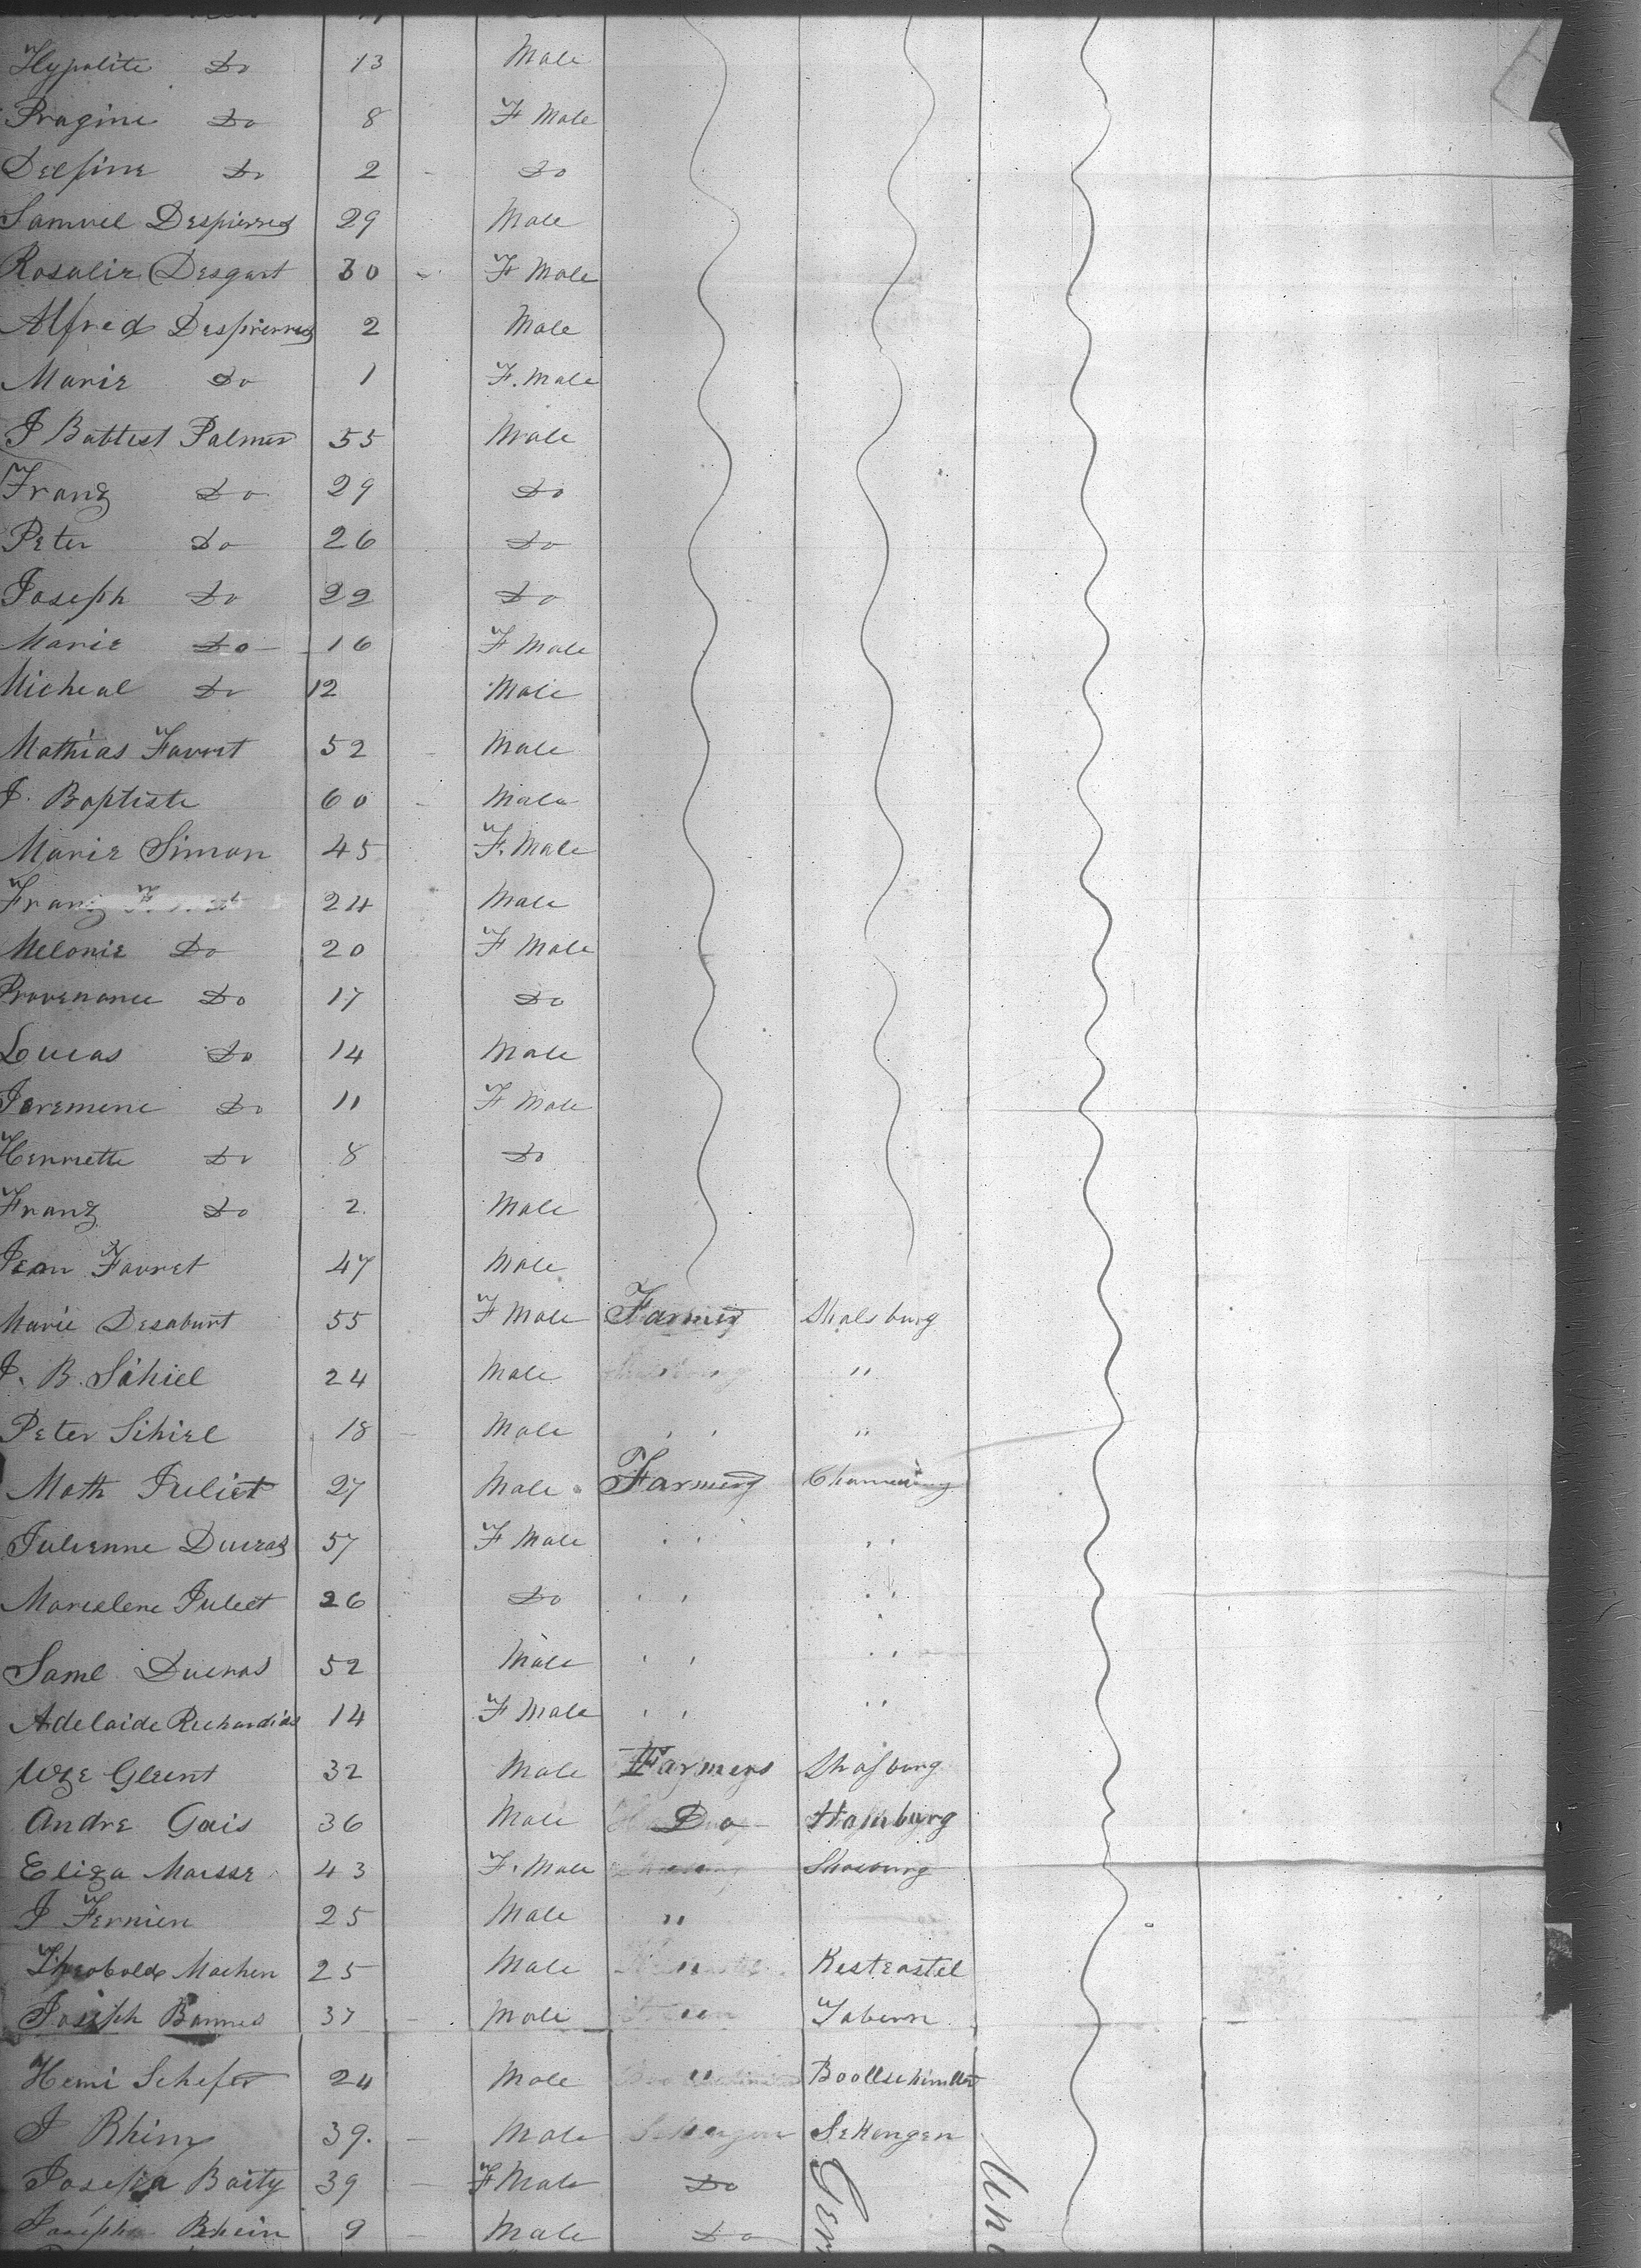 Hypolite Do 13 Male
Pragine Do 8 F Male
Delfine Do 2 Do
Samuel Despierres 29 Male
Rosalie Desgart 30 F Male
Alfred Despierres 2 Male
Marie Do 1 F. Male
J Battest Palmer 55 Male
Franz Do 29 Do
Peter Do 26 Do
Joseph Do 22 Do
Marie Do 16 F Male
Micheal Do 12 Male
Mathias Favret 52 Male
J. Baptiste 60 Male
Marie Simon 45 F. Male
Franz 24 Male
Melonie Do 20 F Male
Provenance Do 17 Do
Lucas Do 14 Male
Jeremene Do 11 F Male
Henriette Do 8 Do
Franz Do 2 Male
Jean Favret 47 Male
Marie Desaburt 55 F Male Farmers Stralsburg
J. B. Sihiel 24 Male "
Peter Sihiel 18 Male " "
Math Juliet 27 Male Farmers
Julienne Ducras 57 F Male " "
Marcelene Juliet 26 Do " "
Saml. Ducras 52 Male " "
Adelaide Richardias 14 F Male " "
Glent 32 Male Farmers Strasburg
Andre Gais 36 Male Do Hamburg
Eliza Maesse 43 F. Male Strasburg
J Fernien 25 Male "
Theobold Machen 25 Male " Kesteastel
Joseph Bannes 37 Male " Tabern
Hemi Schefer 24 Male " Boollschimller
J Rhein 39. Male Sekengen
Josepha Baity 39 F Male Do
Josepha Rhein 9 Male Do
Ger